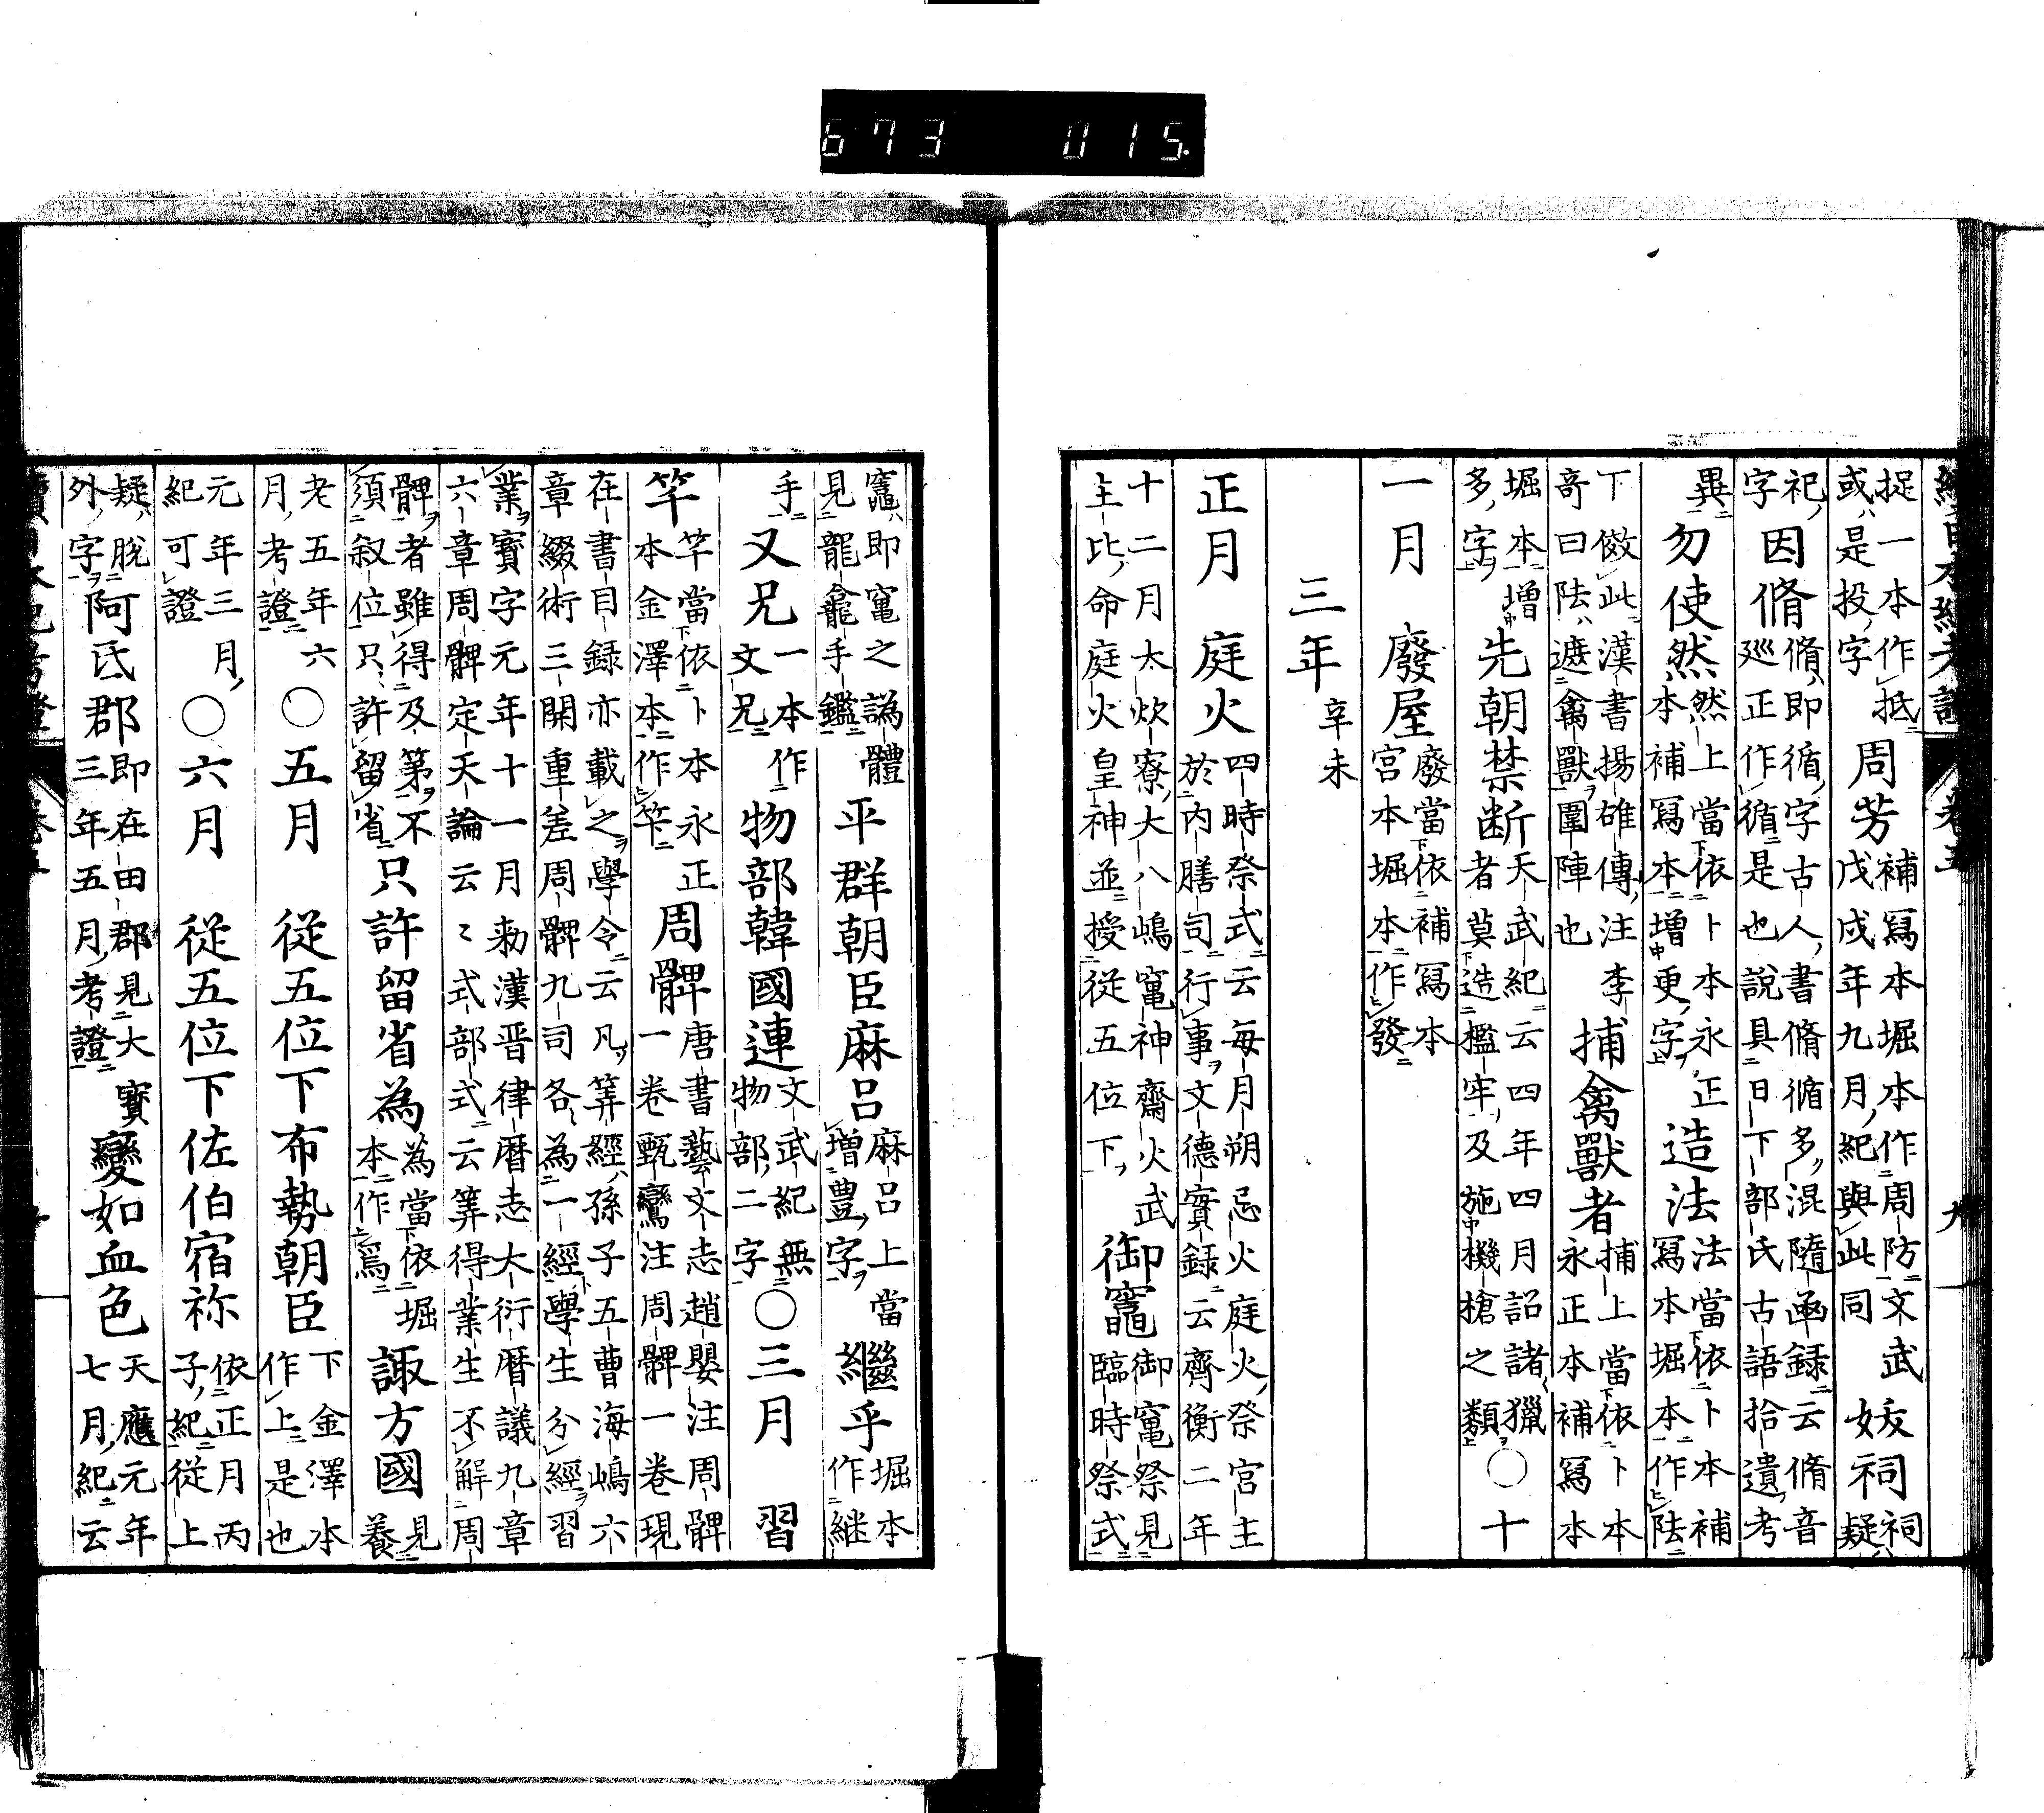 673 015
續日本紀考證 卷五 九
捉一本作抵 周芳 補寫本堀本作周防文武 妭祠 祠疑
或是投字 戊戌年九月紀與此同
祀字 因脩 脩即循字古人書脩循多混隨函録云脩音
廵正作循是也説具日下部氏古語拾遺考
異 勿使然 然上當依卜本永正本補寫本増更字 造法 法當依卜本補寫本堀本作陸
下傚此漢書揚雄傳注李奇曰陸遮禽獸圍陣也 捕禽獸者 捕上當依卜本永正本補寫本
堀本増多字 先朝禁断 天武紀云四年四月詔諸獵者莫造檻牢及施機槍之類 〇十
一月 廢屋 廢當依補寫本宮本堀本作發
三年 辛未
正月 庭火 四時祭式云毎月朔忌火庭火祭宮主於内膳司行事文德實録云齊衡二年
十二月太炊寮大八嶋竃神齋火武主比命庭火皇神並授從五位下 御竈 御竃祭見臨時祭式
竈即竃之譌體見龍龕手鑑 平群朝臣麻呂 麻呂上當増豊字 繼乎 堀本作継
手 又兄 一本作文兄 物部韓國連 文武紀無物部二字 〇三月 習
竿 竿當依卜本永正本金澤本作笇 周髀 唐書藝文志趙嬰注周髀一卷甄鸞注周髀一卷現
在書目録亦載之學令云凡筭經孫子五曹海嶋六章綴術三開重差周髀九司各為一經學生分經習
業寳字元年十一月勅漢晋律暦志大衍暦議九章六章周髀定天論云〻式部式云筭得業生不解周
髀者雖得及第不須叙位只許留省 只許留省為 為當依堀本作焉 諏方國 見養
老五年六月考證 〇五月 從五位下布勢朝臣 下金澤本作上是也
元年三月紀可證 〇六月 從五位下佐伯宿祢 依正月丙子紀從上
疑脫外字 阿氐郡 即在田郡見大寳三年五月考證 變如血色 天應元年七月紀云